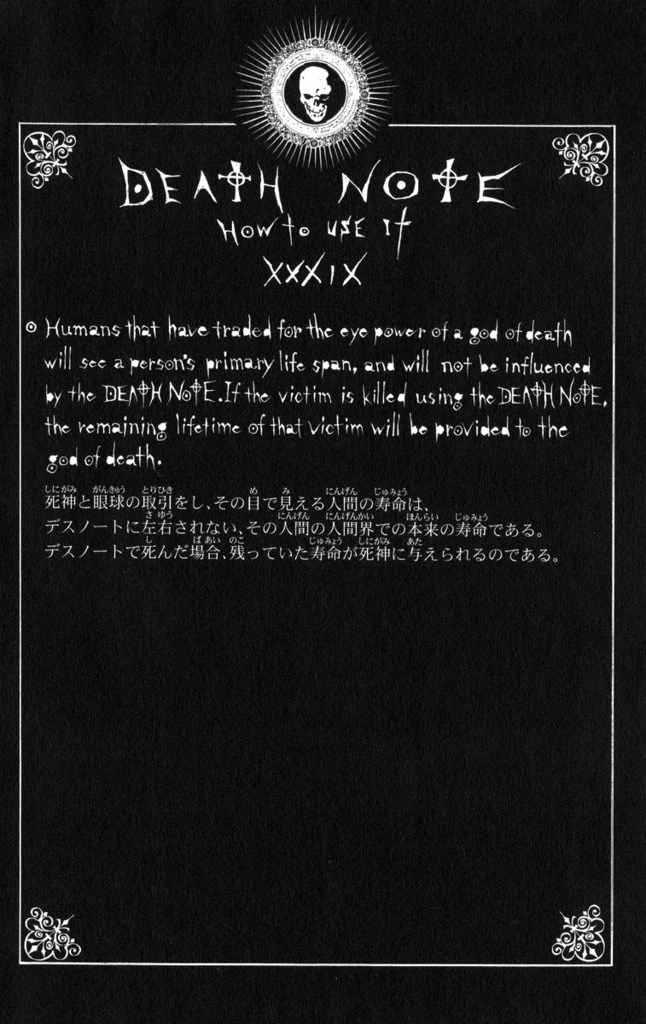 DEATH NOTE
HOW to USE It
XXXIX
Humans that have traded for the eye power of a god of death
will see a person's primary life span, and will not be influenced
by the DEATH NOTE. If the victim is killed using the DEATH NOTE,
the remaining lifetime of that victim will be provided to the
god of death.
しにがみ がんきゅう とりひき め み にんげん じゅみょう
死神と眼球の取引をし、その目で見える人間の寿命は、
さゆう にんげん にんげんかい ほんらい じゅみょう
デスノートに左右されない、その人間の人間界での本来の寿命である。
し ばあい のこ じゅみょう しにがみ あた
デスノートで死んだ場合、残っていた寿命が死神に与えられるのである。